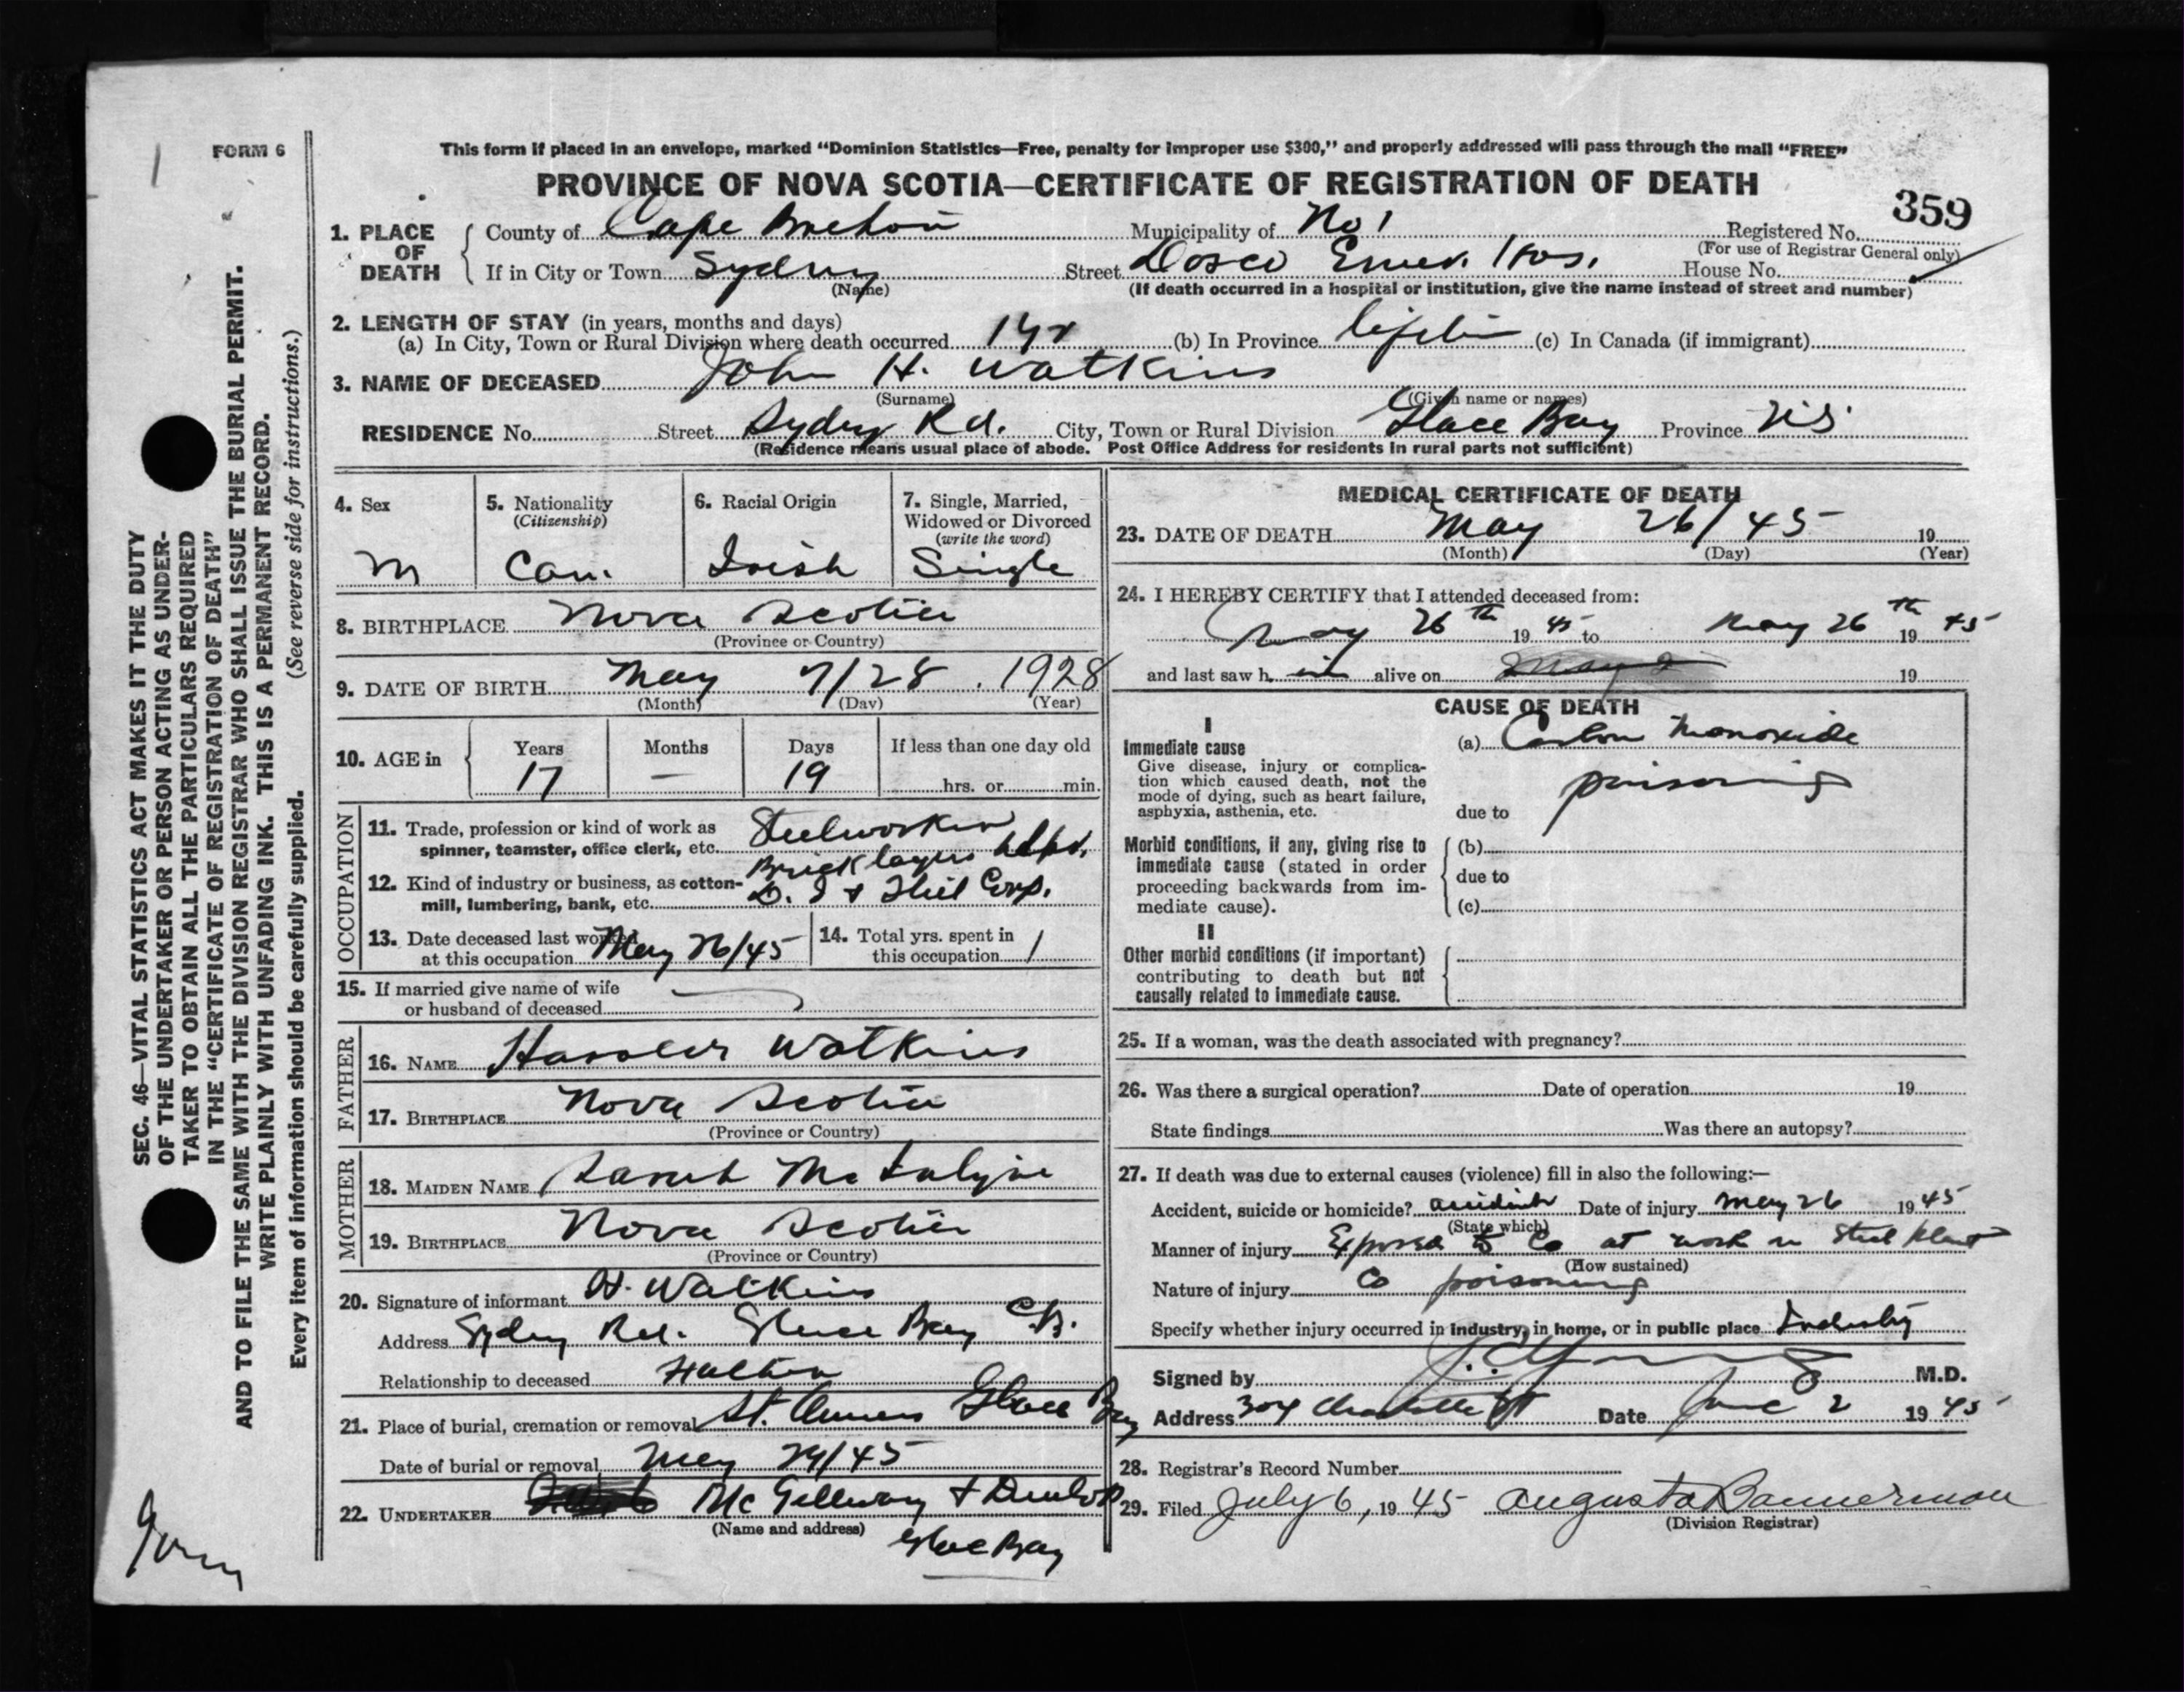 FORM 6
This form if placed in an envelope, marked “Dominion Statistics—Free, penalty for improper use $300,” and properly addressed will pass through the mail “FREE”
PROVINCE OF NOVA SCOTIA—CERTIFICATE OF REGISTRATION OF DEATH
359
1. PLACE OF DEATH
County of Cape Breton Municipality of No 1 Registered No.
(For use of Registrar General only)
If in City or Town Sydney Street Dosco Emer. Hos. House No.
(Name) (If death occurred in a hospital or institution, give the name instead of street and number)
2. LENGTH OF STAY (in years, months and days)
(a) In City, Town or Rural Division where death occurred 1 yr (b) In Province life (c) In Canada (if immigrant)
3. NAME OF DECEASED John H. Watkins
(Surname) (Given name or names)
RESIDENCE No. Street Sydney Rd. City, Town or Rural Division Glace Bay Province N.S.
(Residence means usual place of abode. Post Office Address for residents in rural parts not sufficient)
4. Sex M
5. Nationality (Citizenship) Can.
6. Racial Origin Irish
7. Single, Married, Widowed or Divorced (write the word) Single
8. BIRTHPLACE Nova Scotia
(Province or Country)
9. DATE OF BIRTH May 7/28 . 1928
(Month) (Day) (Year)
10. AGE in Years 17 Months — Days 19 If less than one day old
hrs. or min.
OCCUPATION
11. Trade, profession or kind of work as spinner, teamster, office clerk, etc. Steelworker
Bricklayers helpr.
12. Kind of industry or business, as cotton-mill, lumbering, bank, etc. D. I & Steel Corp.
13. Date deceased last worked at this occupation May 26/45
14. Total yrs. spent in this occupation 1
15. If married give name of wife or husband of deceased
FATHER
16. NAME Watkins
17. BIRTHPLACE Nova Scotia
(Province or Country)
MOTHER
18. MAIDEN NAME Sarah
19. BIRTHPLACE Nova Scotia
(Province or Country)
20. Signature of informant H. Watkins
Address Sydney Rd. Glace Bay C.B.
Relationship to deceased Father
21. Place of burial, cremation or removal St. Annes Glace Bay
Date of burial or removal May 29/45
22. UNDERTAKER McGillivary & Dunlop
(Name and address)
Glace Bay
MEDICAL CERTIFICATE OF DEATH
23. DATE OF DEATH May 26/45 19
(Month) (Day) (Year)
24. I HEREBY CERTIFY that I attended deceased from:
May 26th 19 45 to May 26th 19 45
and last saw h im alive on May 2 19
CAUSE OF DEATH
I
Immediate cause
Give disease, injury or complication which caused death, not the mode of dying, such as heart failure, asphyxia, asthenia, etc.
(a) Carbon Monoxide
poisoning
due to
Morbid conditions, if any, giving rise to immediate cause (stated in order proceeding backwards from immediate cause).
(b)
due to
(c)
II
Other morbid conditions (if important) contributing to death but not causally related to immediate cause.
25. If a woman, was the death associated with pregnancy?
26. Was there a surgical operation? Date of operation 19
State findings Was there an autopsy?
27. If death was due to external causes (violence) fill in also the following:—
Accident, suicide or homicide? accident Date of injury May 26 19 45
(State which)
Manner of injury Exposed to Co at work in Steel plant
(How sustained)
Nature of injury Co poisoning
Specify whether injury occurred in industry, in home, or in public place Industry
Signed by M.D.
Address 304 Charlotte St Date June 2 19 45
28. Registrar's Record Number
29. Filed July 6, 19 45 Augusta Bannerman
(Division Registrar)
SEC. 46—VITAL STATISTICS ACT MAKES IT THE DUTY
OF THE UNDERTAKER OR PERSON ACTING AS UNDER-
TAKER TO OBTAIN ALL THE PARTICULARS REQUIRED
IN THE “CERTIFICATE OF REGISTRATION OF DEATH”
AND TO FILE THE SAME WITH THE DIVISION REGISTRAR WHO SHALL ISSUE THE BURIAL PERMIT.
WRITE PLAINLY WITH UNFADING INK. THIS IS A PERMANENT RECORD.
Every item of information should be carefully supplied. (See reverse side for instructions.)